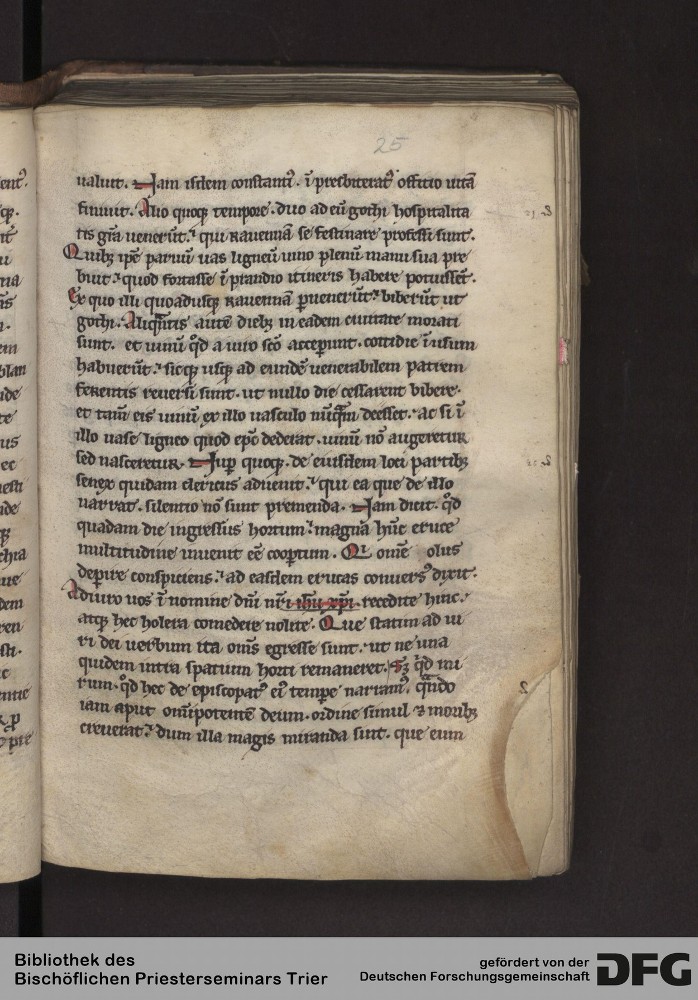 25
ualuit. Nam isdem constanti⁹. ī presbiterat⁹ offitio uitā
finiuit. Alio quoq; tempore. duo ad eū gothi hospitalita
tis grā uenerūt. qui rauennā se festinare professi sunt.
Quib; ip̄e paruū uas ligneū uino plenū manu sua pre
buit. quod fortasse ī prandio itineris habere potuissēt.
Ex quo illi quoadusq; rauennā puenerūt. biberūt ut
gothi. Aliquātis autē dieb; in eadem ciuitate morati
sunt. et uinū qd a uiro scō acceperunt. cottidie ī usum
habuerūt. sicq; usq; ad eundē uenerabilem patrem
ferentis reuersi sunt. ut nullo die cessarent bibere.
et tam̄ eis uinū ex illo uasculo nūquā deesset. ac si ī
illo uase ligneo quod epc̄ dederat. uinū nō augeretur
sed nasceretur. Nup quoq;. de eiusdem loci partib;
senex quidam clericus aduenit. qui ea que de illo
narrat. silentio nō sunt premenda. Nam dicit. qd
quadam die ingressus hortum. magnā hūc eruce
multitudine inuenit eē cooptum. Qi omē olus
deperire conspiciens. ad easdem erucas conuers⁹ dixit.
Adiuro uos ī nomine dn̄i nr̄i ihū xp̄i. recedite hinc.
atq; hec holera comedere nolite. Que statim ad ui
ri dei uerbum ita om̄s egresse sunt. ut ne una
quidem intra spatium horti remaneret. Sz qd mi
rum. qd hec de episcopat⁹ ei⁹ tempe narram⁹. quādo
iam aput om̄ipotentē deum. ordine simul & morib;
creuerat. dum illa magis miranda sint. que eum
Bibliothek des
Bischöflichen Priesterseminars Trier
gefördert von der
Deutschen Forschungsgemeinschaft
DFG